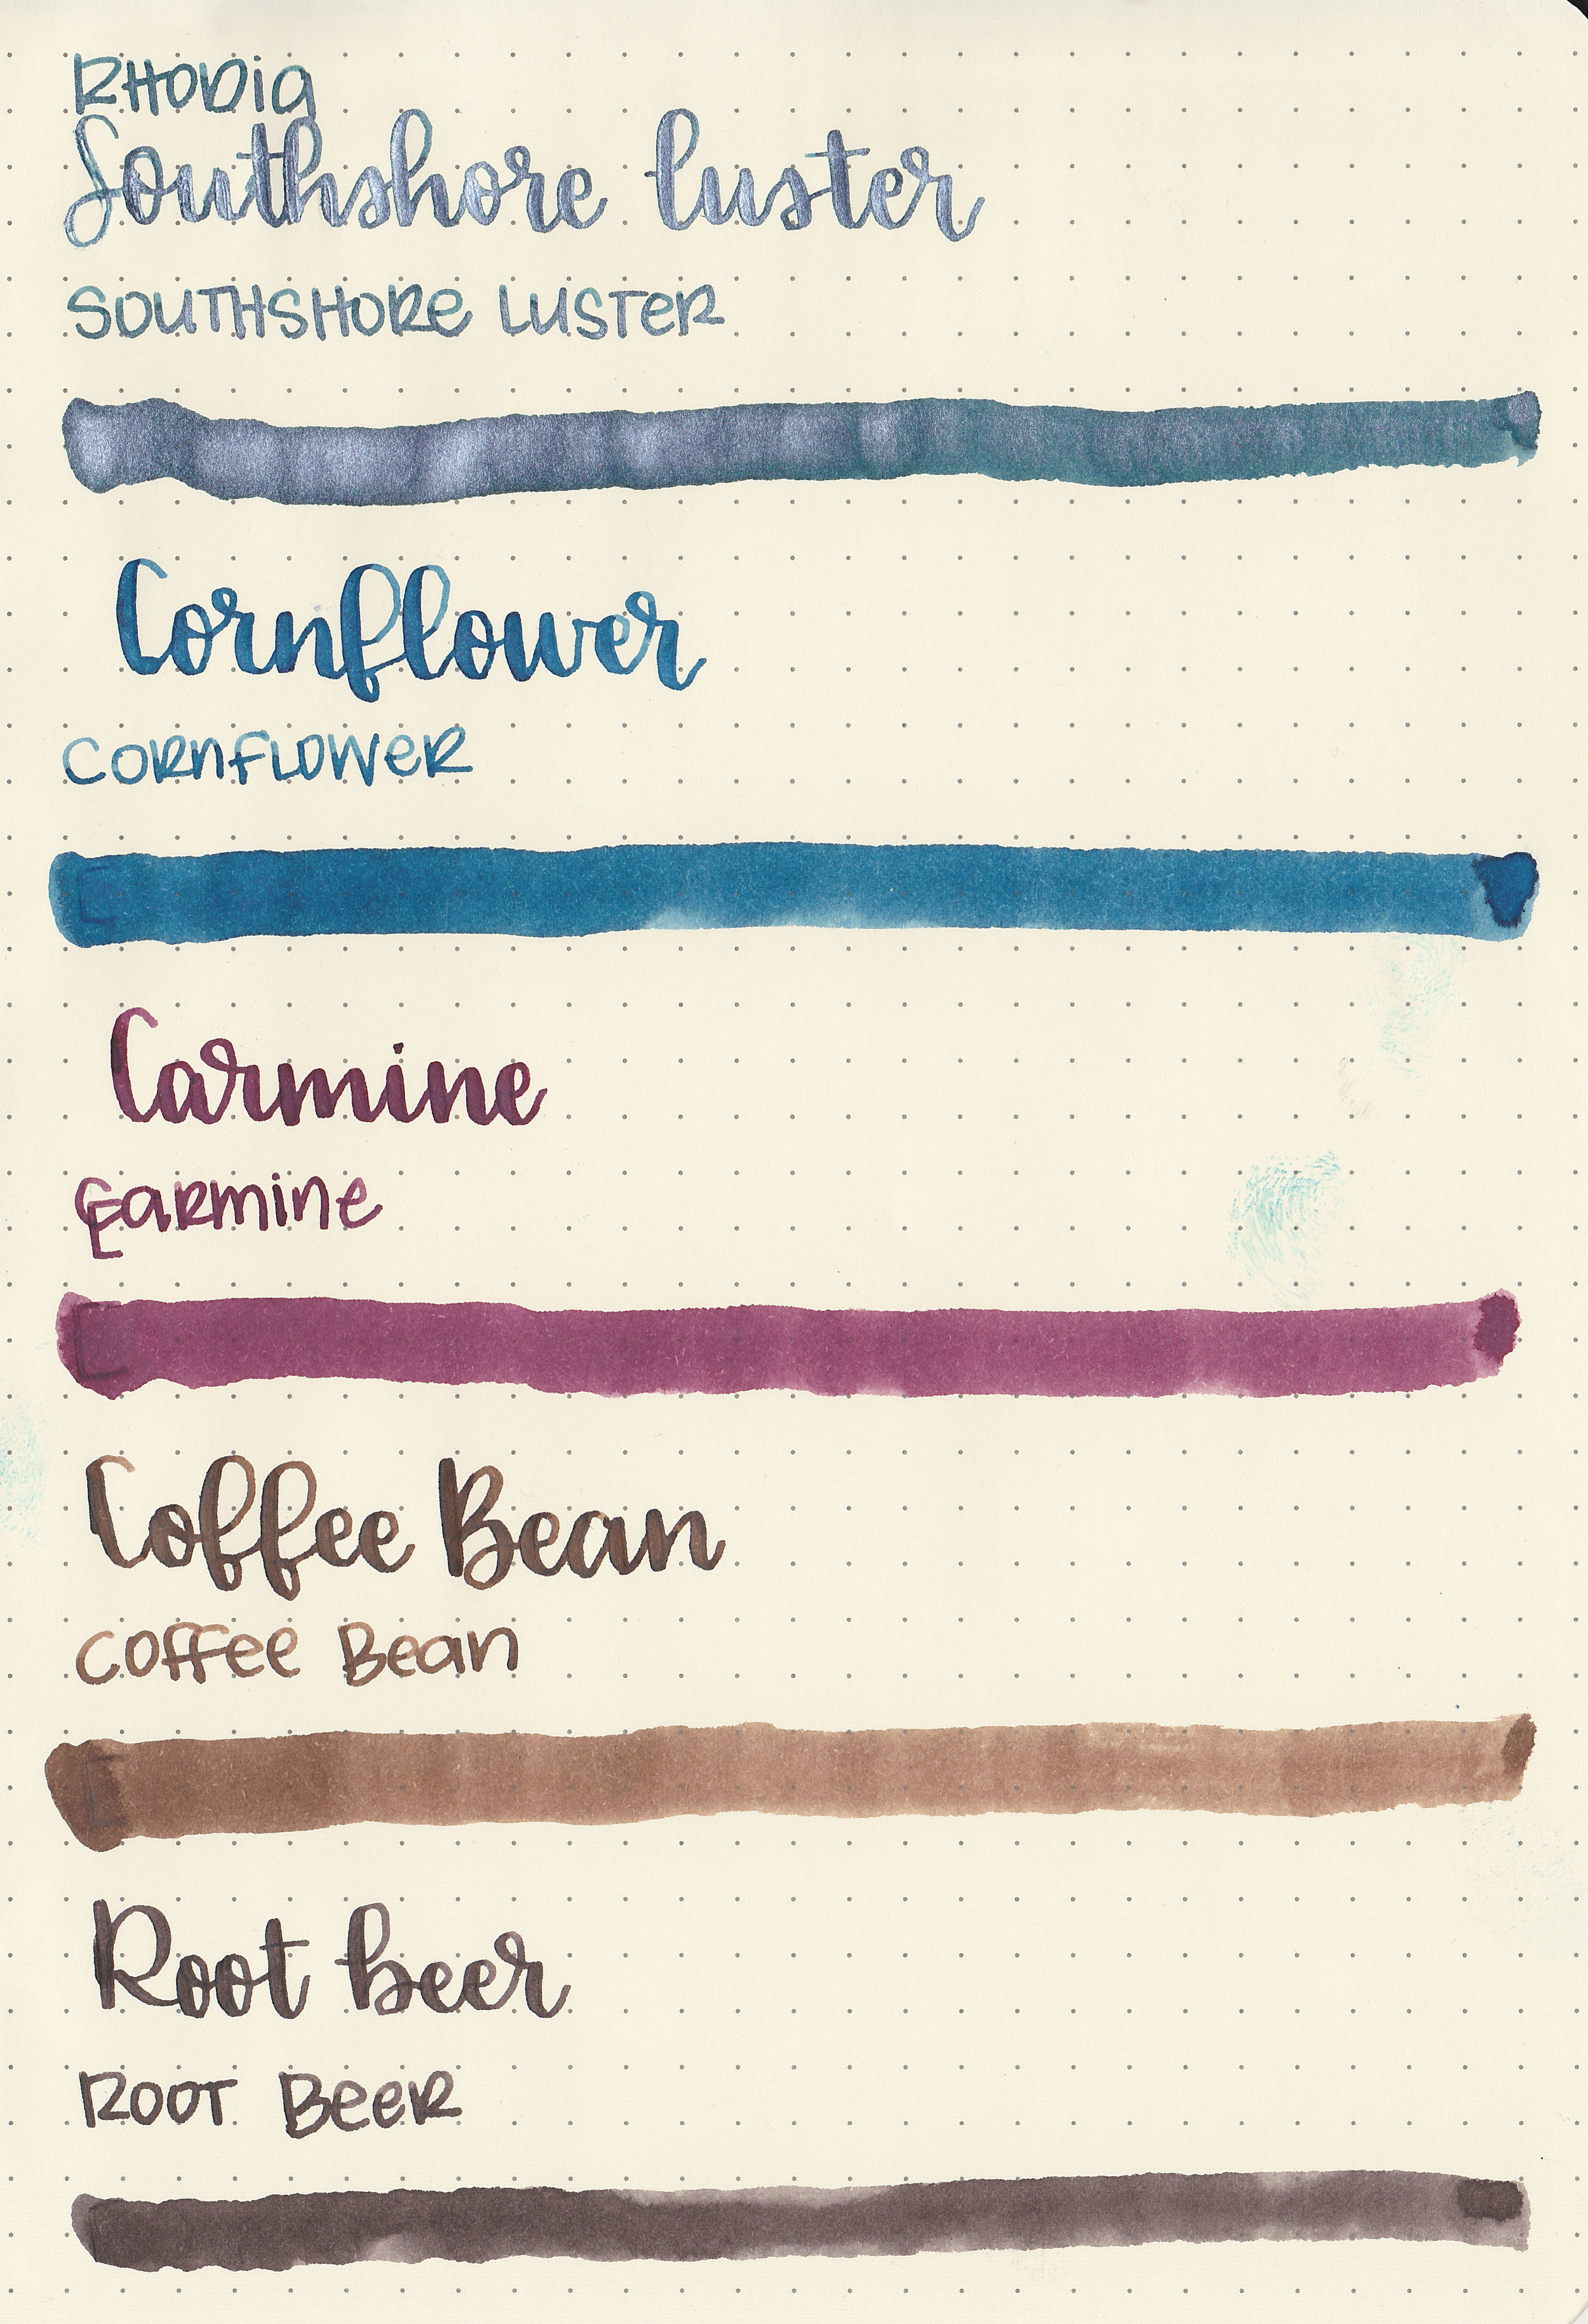 RHODIA
Southshore luster
SOUTHSHORE LUSTER
Cornflower
CORNFLOWER
Carmine
CARMINE
Coffee Bean
Coffee Bean
Root beer
ROOT BEER